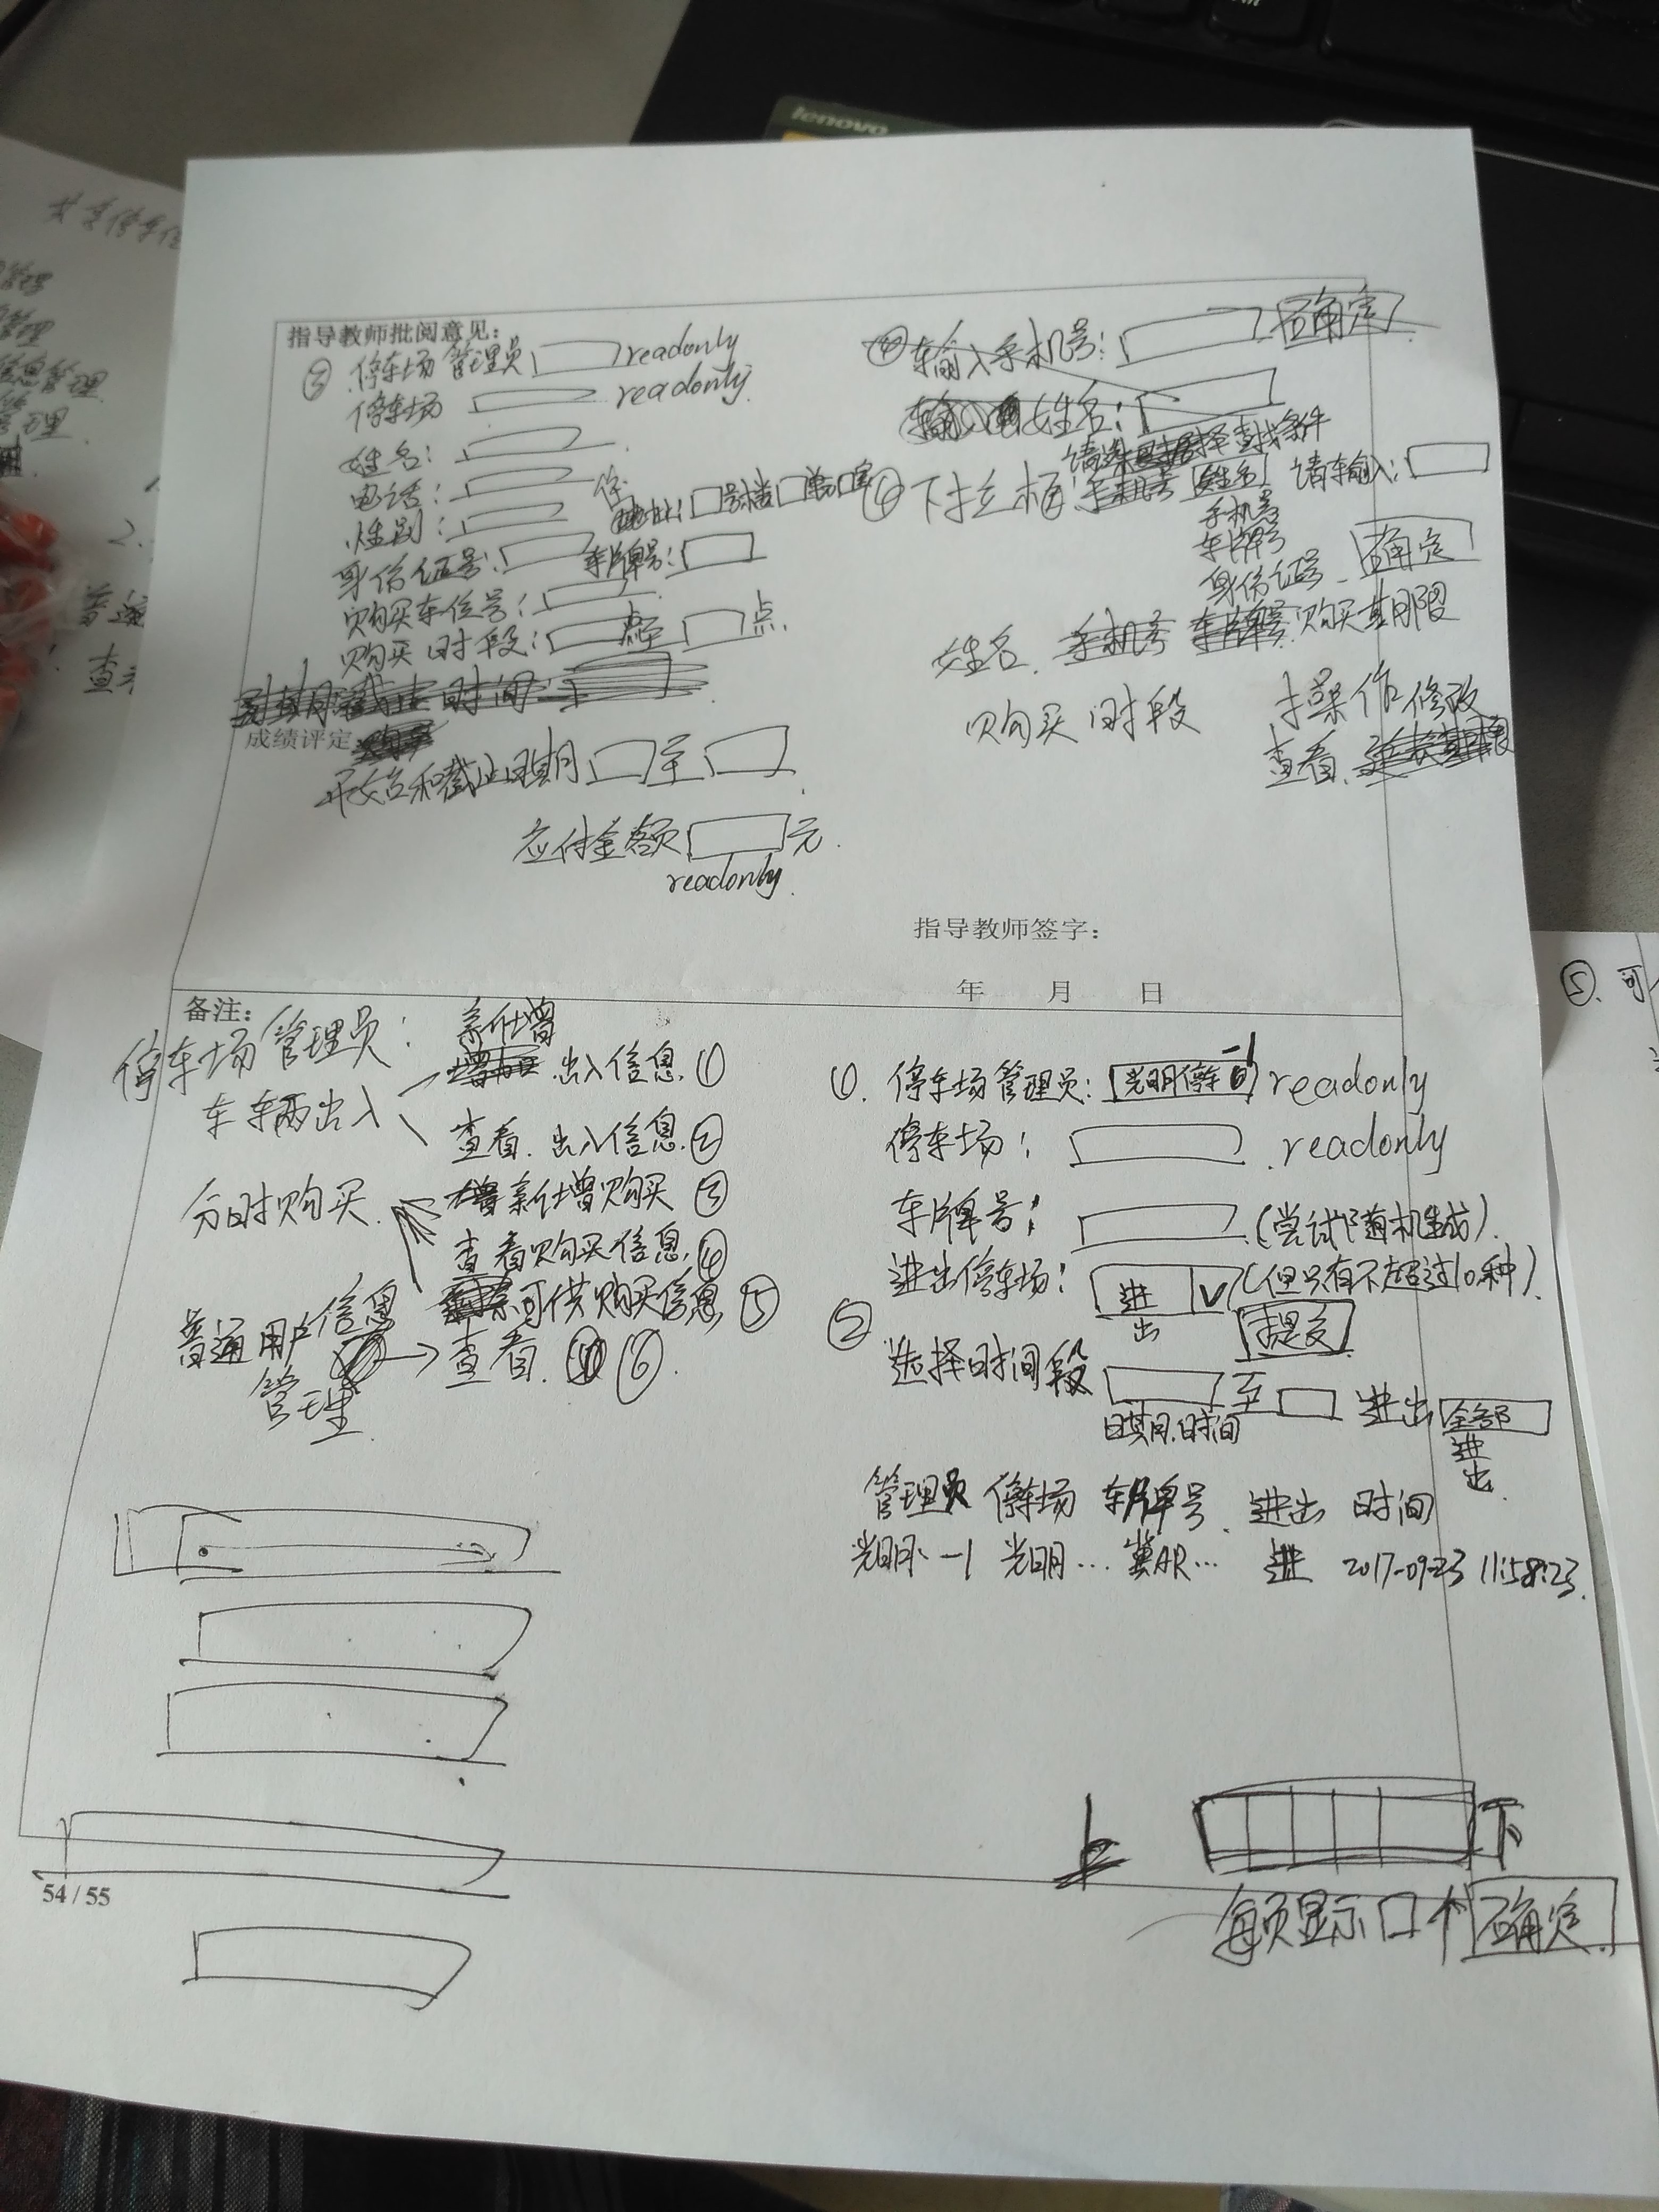 lenovo
指导教师批阅意见：
③ 停车场管理员 readonly
停车场 readonly
姓名：
电话：
性别：
住址： 号楼 单元 室
身份证号： 车牌号：
购买车位号：
购买时段： 点至 点
成绩评定
开始和截止日期 至
应付金额 元
readonly
④ 输入手机号： 确定
姓名：
请选择查找条件
④ 下拉框： 姓名 请输入：
手机号
车牌号
身份证号 确定
姓名 手机号 车牌号 购买期限
购买时段 操作 修改
查看
指导教师签字：
年 月 日
备注：
停车场管理员： 新增
车辆出入 出入信息 ①
查看 出入信息 ②
分时购买 新增购买 ③
查看购买信息 ④
可供购买信息 ⑤
普通用户信息 → 查看 ⑥
管理
①. 停车场管理员： 光明停车-1 readonly
停车场： readonly
车牌号： (尝试随机生成)
进出停车场： 进 V (但只有不超过10种)
出 提交
② 选择时间段 至 进出 全部
日期.时间 进
出
管理员 停车场 车牌号 进出 时间
光明-1 光明… 冀AR… 进 2017-09-23 11:58:23
上 下
每页显示 个 确定
54 / 55
⑤、可
管理
管理
信息管理
管理
2.
普通
查